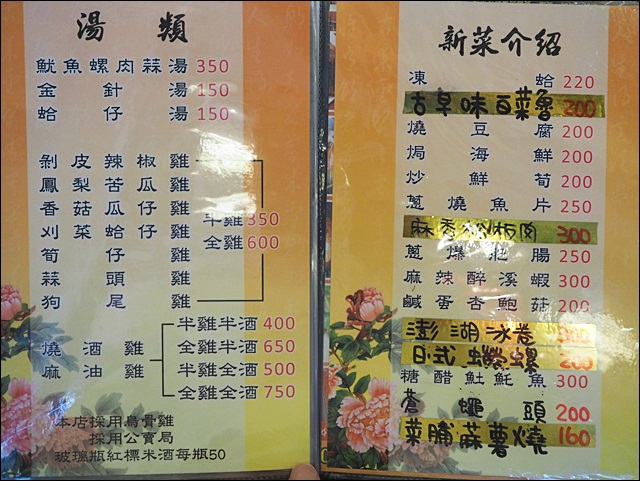 湯類
魷魚螺肉蒜湯350
金針湯150
蛤仔湯150
剝皮辣椒雞
鳳梨苦瓜雞
香菇瓜仔雞
刈菜蛤仔雞
筍仔雞
蒜頭雞
狗尾雞
半雞350
全雞600
燒酒雞
麻油雞
半雞半酒400
全雞半酒650
半雞全酒500
全雞全酒750
本店採用烏骨雞
採用公賣局
玻璃瓶紅標米酒每瓶50
新菜介紹
凍蛤220
古早味白菜魯200
燒豆腐200
焗海鮮200
炒鮮筍200
蔥燒魚片250
麻香 板肉300
蔥爆 腸250
麻辣醉溪蝦300
鹹蛋杏鮑菇200
澎湖冰卷
日式 螺200
糖醋魠魚300
蒼蠅頭200
菜脯蒜薯燒160